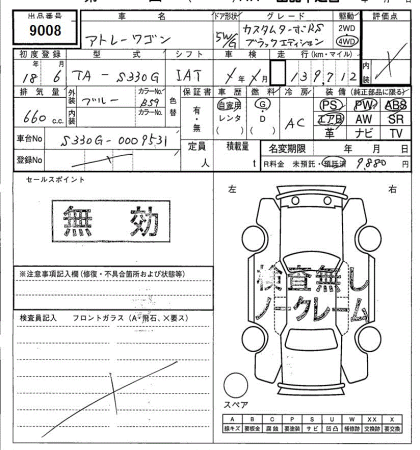 出品番号 車名 ドア形状 グレード 駆動 評価点
9008 アトレーワゴン 5W/G カスタムターボRS ブラックエディション 2WD 4WD
初度登録 型式 シフト 車検 走行(km・マイル)
18 6 TA-S330G IAT X年X月 139712
排気量 外装 カラーNo. 色替 保証書 車歴 燃料 冷房 装備(純正部品に限る)
660c.c. ブルー B59 有・無 自家用 レンタ ( ) G・D ( ) AC PS PW ABS
内装 カラーNo. エアB AW SR
車台No S330G-0009531 革 ナビ TV
登録No 定員 人 積載量 t 名変期限 年 月 日
R料金 未預託・預託済 9880円
セールスポイント
無効
左 右
※注意事項記入欄(修復・不具合箇所および状態等)
検査無し
ノークレーム
検査員記入 フロントガラス(A・飛石、X要ス)
スペア
A B C P S U W X XX
線キズ 要板金 腐蝕 要塗装 サビ 凹凸 補修跡 交換 要交換